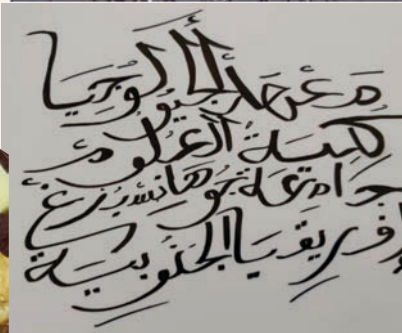 معهد الجيولوجيا
كلية العلوم
جامعة جوهانسبرغ
إفريقيا الجنوبية